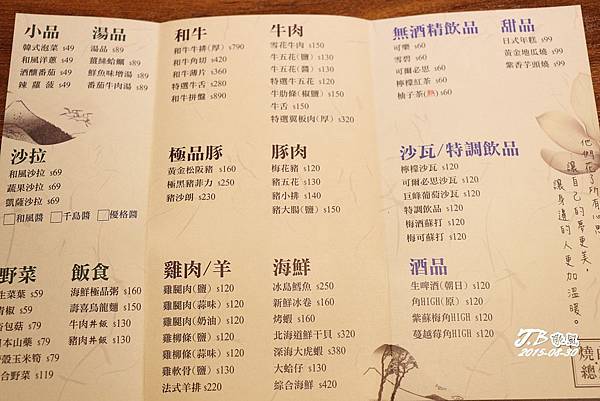 小品
韓式泡菜 $49
和風洋蔥 $49
酒釀番茄 $49
辣蘿蔔 $49
湯品
湯品 $89
薑絲蛤蠣 $89
鮮魚味增湯 $89
番茄牛肉湯 $89
和牛
和牛牛排(厚) $790
和牛角切 $420
和牛薄片 $360
特選牛舌 $280
和牛拼盤 $890
牛肉
雪花牛肉 $150
牛五花(鹽) $130
牛五花(醬) $130
特選牛五花 $120
牛肋條(椒鹽) $150
牛舌 $150
特選翼板肉(厚) $320
無酒精飲品
可樂 $60
雪碧 $60
可爾必思 $60
檸檬紅茶 $60
柚子茶(熱) $60
甜品
日式年糕 $99
黃金地瓜燒 $99
紫香芋頭燒 $99
沙拉
和風沙拉 $69
蔬果沙拉 $69
凱薩沙拉 $69
和風醬 千島醬 優格醬
極品豚
黃金松阪豬 $160
極黑豬菲力 $250
豬沙朗 $230
豚肉
梅花豬 $120
豬五花 $130
豬小排 $140
豬大腸(鹽) $150
沙瓦/特調飲品
檸檬沙瓦 $120
可爾必思沙瓦 $120
巨峰葡萄沙瓦 $120
特調飲品 $120
梅酒蘇打 $120
梅可蘇打 $120
野菜
生菜葉 $59
青椒 $59
杏包菇 $79
日本山藥 $79
帶殼玉米筍 $79
綜合野菜 $119
飯食
海鮮極品粥 $160
壽喜烏龍麵 $150
牛肉丼飯 $130
豬肉丼飯 $130
雞肉/羊
雞腿肉(鹽) $120
雞腿肉(蒜味) $120
雞腿肉(奶油) $120
雞柳條(鹽) $130
雞柳條(蒜味) $130
雞軟骨(鹽) $130
法式羊排 $220
海鮮
冰島鱈魚 $250
新鮮冰卷 $160
烤蝦 $160
北海道鮮干貝 $320
深海大虎蝦 $380
大蛤仔 $150
綜合海鮮 $420
酒品
生啤酒(朝日) $120
角HIGH(原) $120
紫蘇梅角HIGH $120
蔓越莓角HIGH $120
讓自己的夢更美，
讓身邊的人更加溫暖。
J.B
2015-08-30